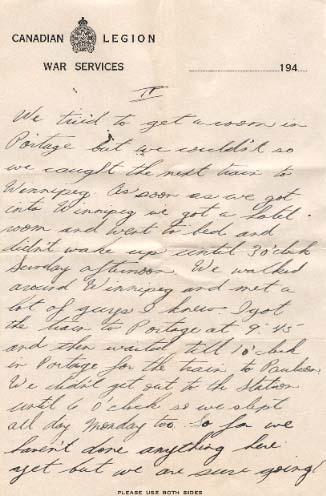 CANADIAN LEGION
WAR SERVICES
194
IV
We tried to get a room in
Portage but we couldn't so
we caught the next train to
Winnipeg. As soon as we got
into Winnipeg we got a hotel
room and went to bed and
didn't wake up until 3 o'clock
Sunday afternoon. We walked
around Winnipeg and met a
lot of guys I knew. I got
the train to Portage at 9:45
and then waited till 1 o'clock
in Portage for the train to Paulson.
We didn't get out to the station
until 6 o'clock so we slept
all day Monday too. So far we
haven't done anything here
yet but we are sure going
PLEASE USE BOTH SIDES